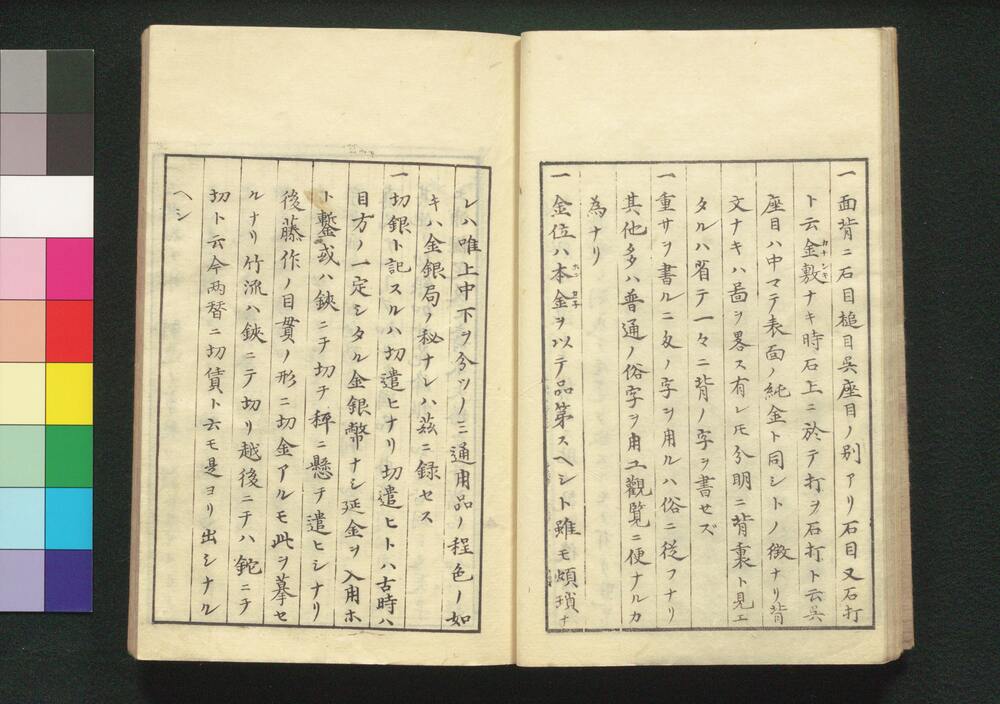 一面背ニ石目槌目呉座目ノ別アリ石目又石打
ト云金敷ナキ時石上ニ於テ打ヲ石打ト云呉
カナシキ
座目ハ中マテ表面ノ純金ト同シトノ徴ナリ背
文ナキハ啚ヲ畧ス有レ𪜈分明ニ背裏ト見エ
タルハ省テ一々ニ背ノ字ヲ書セズ
一重サヲ書ルニ匁ノ字ヲ用ルハ俗ニ従フナリ
其他多ハ普通ノ俗字ヲ用エ觀覧ニ便ナルカ
為ナリ
一金位ハ本金ヲ以テ品第スヘシト雖モ煩瑣ナ
レハ唯上中下ヲ分ツノミ通用品ノ程色ノ如
キハ金銀局ノ秘ナレハ茲ニ録セス
一切銀ト記スルハ切遣ヒナリ切遣ヒトハ古時ハ
目方ノ一定シタル金銀幣ナシ延金ヲ入用ホ
ト鏨或ハ鋏ニテ切チ秤ニ懸テ遣ヒシナリ
後藤作ノ目貫ノ形ニ切金アルモ此ヲ摹セ
ルナリ竹流ハ鋏ニテ切リ越後ニテハ鉈ニテ
切ト云今両替ニ切賃ト云モ是ヨリ出シナル
ヘシ